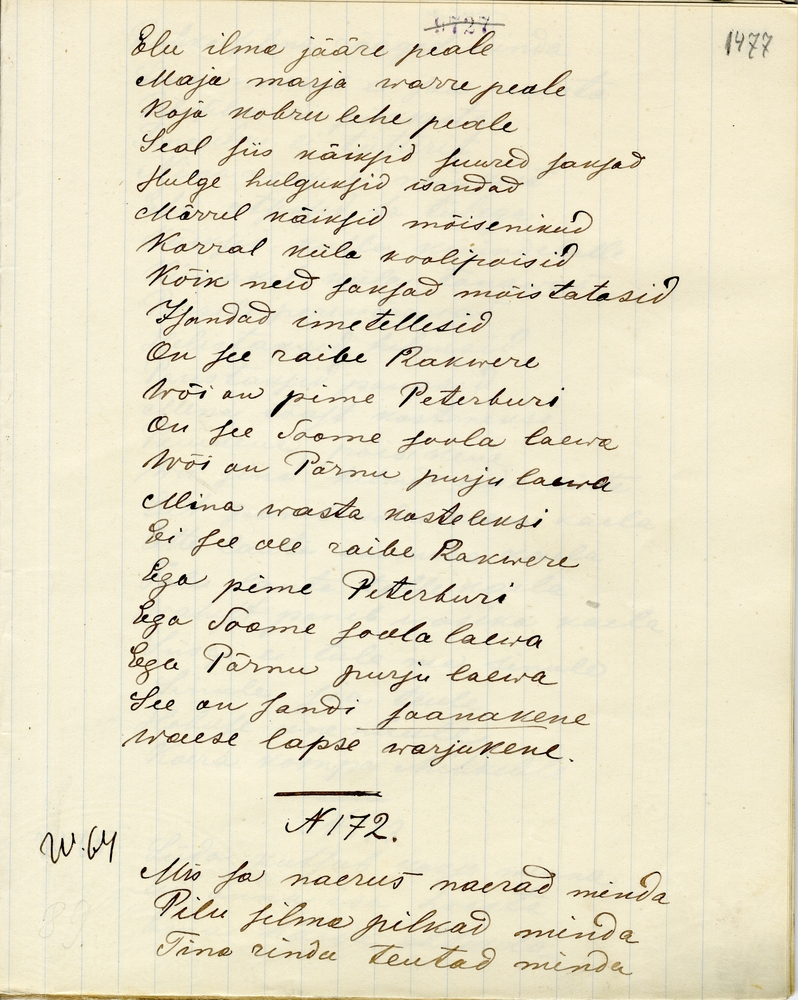 1477
Elu ilma jääre peale
Maja marja warre peale
Koja kobru lehe peale
Seal siis käiksid suured saksad
Hulge hulguksid isandad
Mõrrul käiksid mõisenikud
Korral küla koolipoisid
Kõik neid saksad mõistatasid
Isandad imetellesid
On see raibe Rakwere
Wõi on pime Peterburi
On see Soome soola laewa
Wõi on Pärnu purju laewa
Mina wasta kosteleksi
Ei see ole raibe Rakwere
Ega pime Peterburi
Ega Soome soola laewa
Ega Pärnu purju laewa
See on sandi saanakene
waese lapse warjukene.
N 172.
W. 64
Mis sa naerus naerad minda
Pilu silma pilkad minda
Tina rinda teutad minda